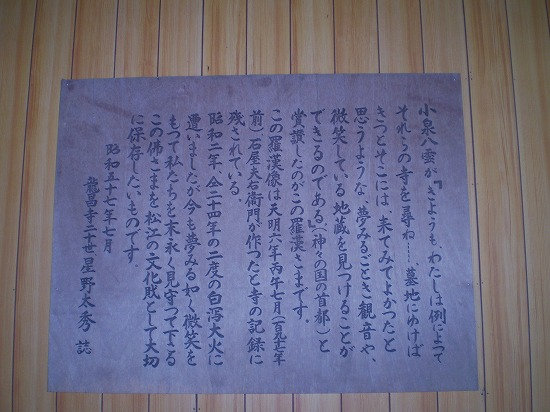 小泉八雲が『きょうも、わたしは例によって
それらの寺を尋ね……墓地にゆけば
きっとそこには 来てみてよかったと
思うような、夢みるごとき観音や、
微笑している地蔵を見つけることが
できるのである』（神々の国の首都）と
賞讃したのがこの羅漢さまです。
この羅漢像は天明六年丙午七月（
前）石屋太右衛門が作つたと寺の記録に
残されている。
昭和二年、仝二十四年の二度の白潟大火に
遭いましたが今も夢みる如く微笑を
もつて私たちを末永く見守つて下さる
この佛さまを松江の文化財として大切
に保存したいものです。
昭和五十七年七月
龍昌寺二十世 星野太秀 誌